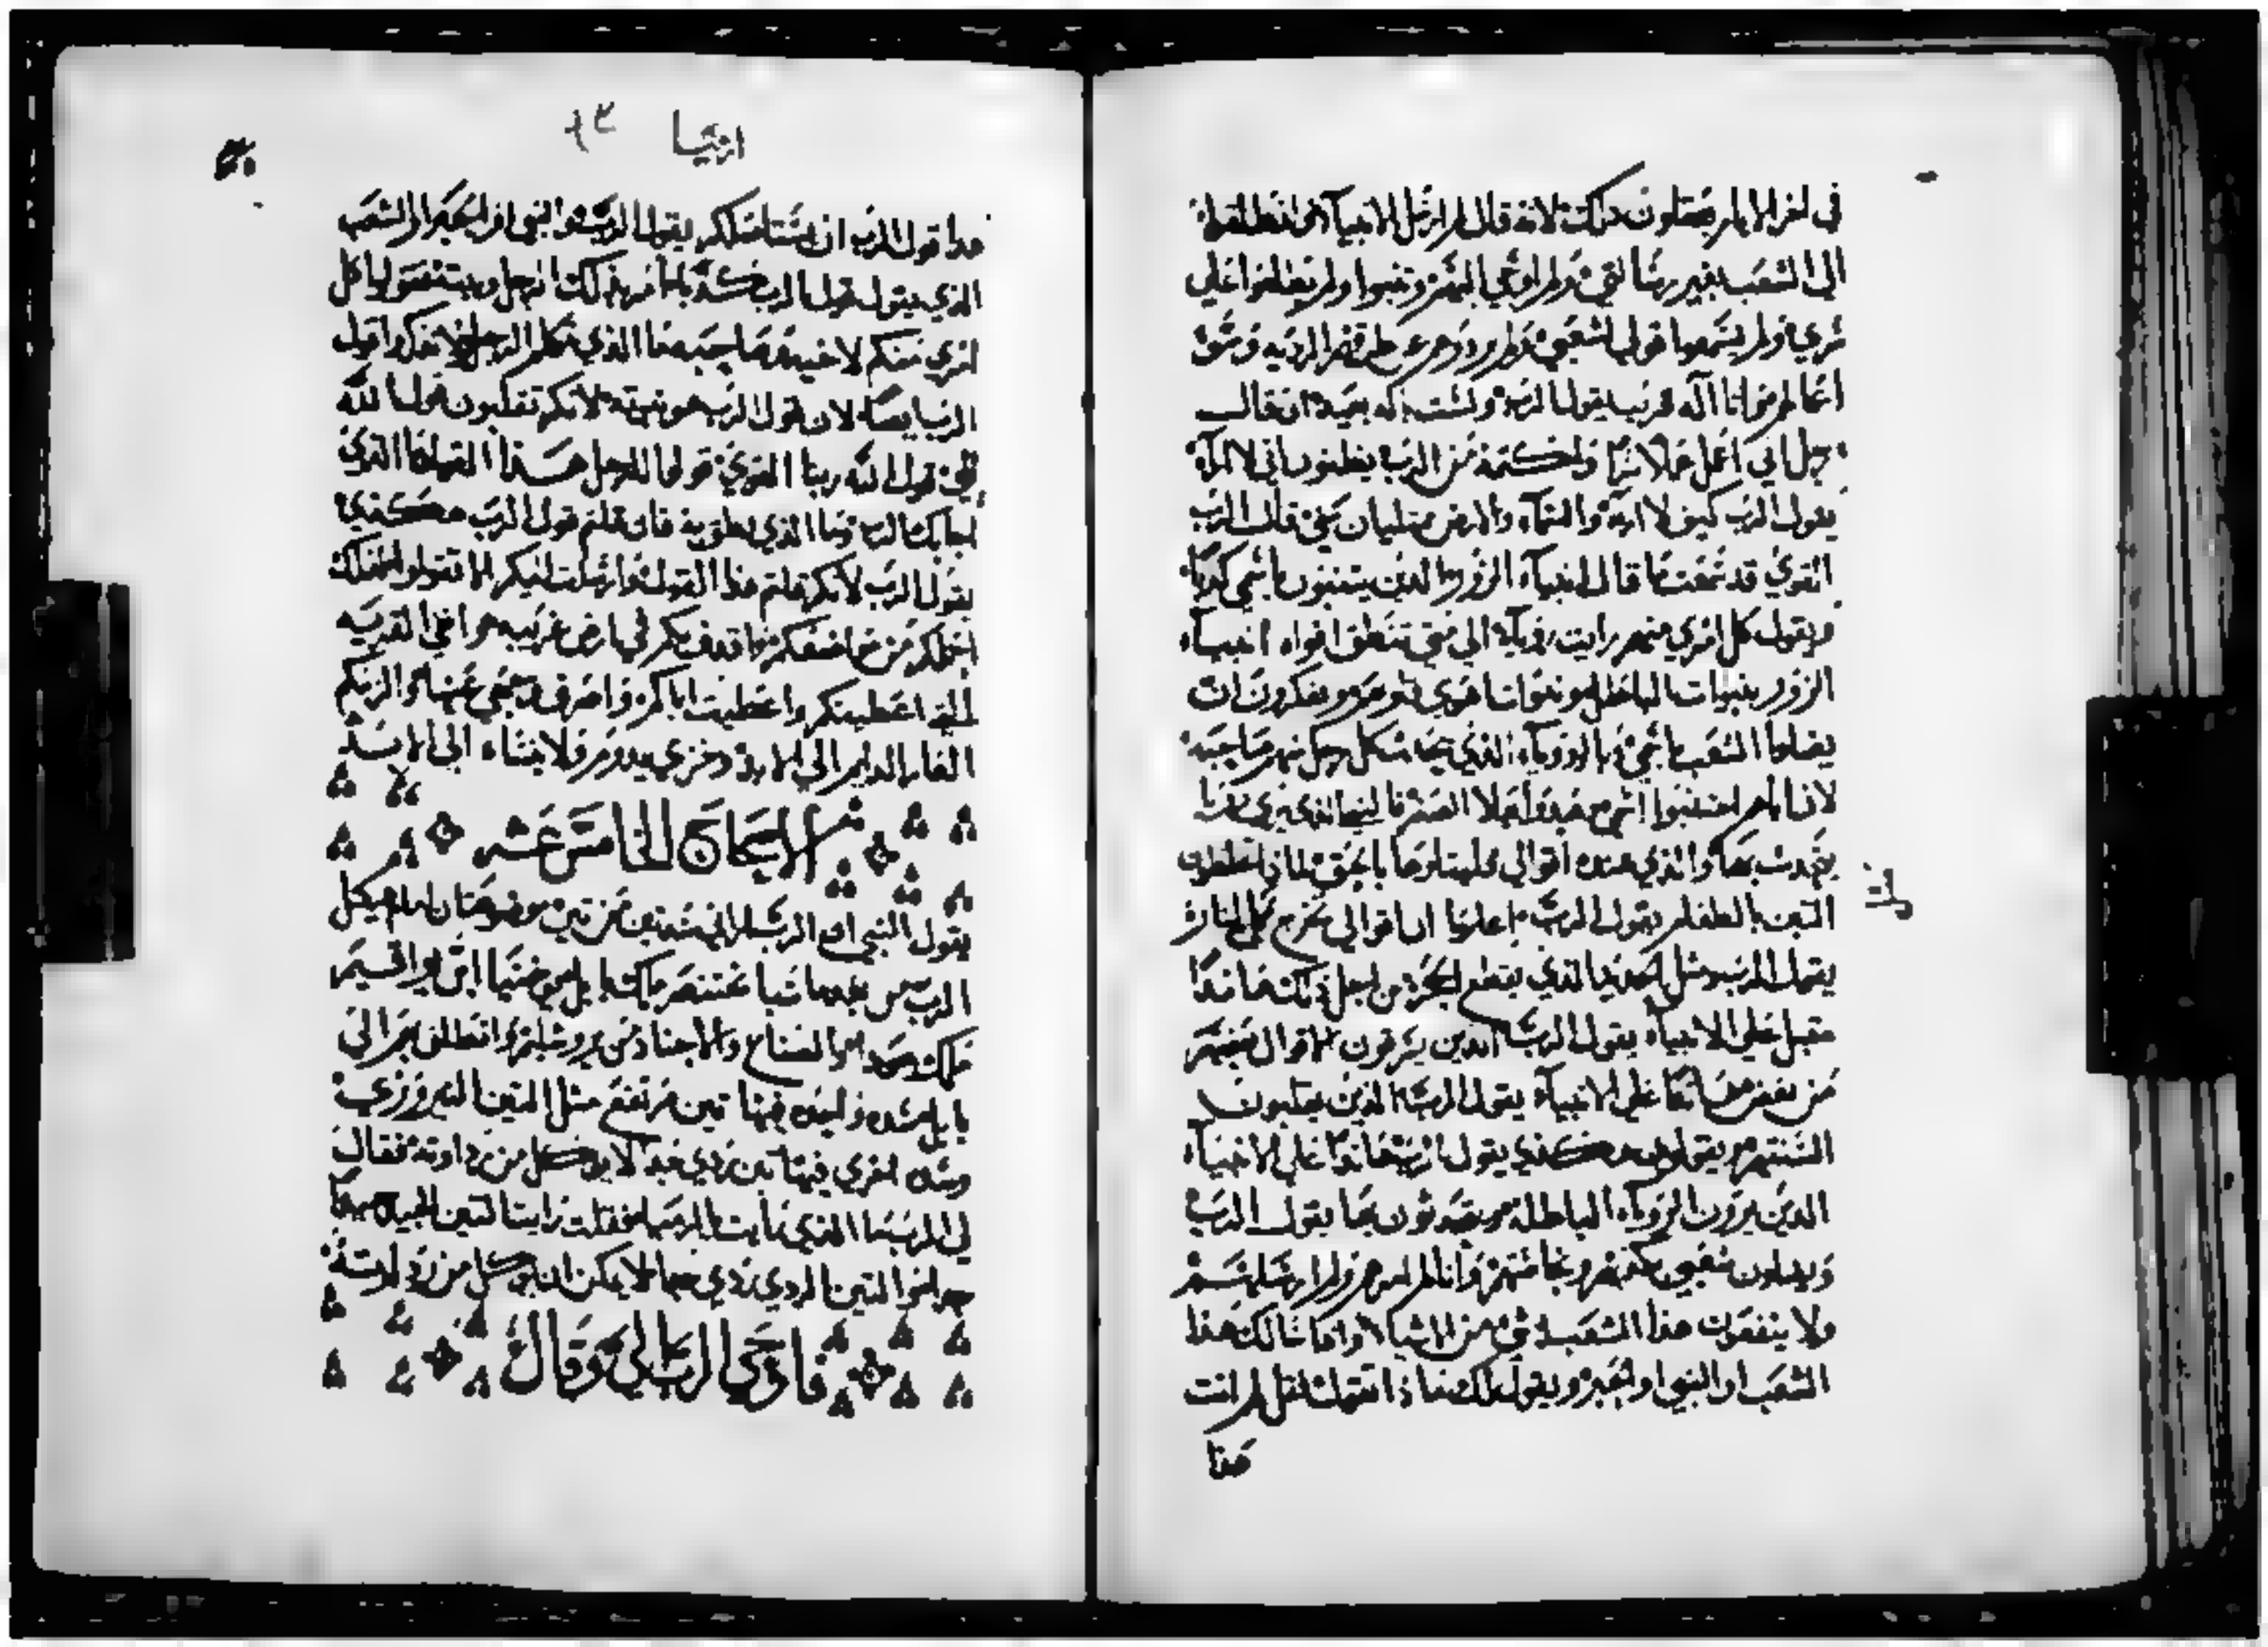 في اخر الايام تعقلون ذلك لانه قال لم ارسل الانبياء هم انطلقوا
الى الشعب بغير رسالتي ولم اوحي اليهم وتنبوا ولم يطلعوا علي
سري ولم يسمعوا قولي لشعبي ولم يردوهم عن طرقهم الرديه وسو
اعمالهم انا اله قريب يقول الرب ولست اله بعيد ان قال
رجل اني اعمل عملا سرا واكتمه من الرب يظنون اني لا اراه
يقول الرب كيف لا اراه والسماء والارض ممتليان مني قال الرب
القوي قد سمعت ما قال انبياء الزور الذين يتنبون باسمي كذبا
ويقول كل امري منهم رايت رويا الى متى تنطق افواه انبياء
الزور بنبوات الباطل ونبوات هوي قلوبهم ويفكرون ان
يضلوا الشعب باسمي بالرويا الذي يحدث كل رجل منهم صاحبه
لان اباهم اجتنبوا اسمي وعبدوا بعلا الصنم فالنبي الذي يري رويا
يتحدث بها والذي عنده اقوالي فليتلوها بالحق لماذا تخلطون
التبن بالطعام يقول الرب اعلموا ان اقوالي تخرج كالنار
يقول الرب ومثل الحديد الذي يقطع الحجر من اجل ذلك هانذا
مقبل علي الانبياء يقول الرب الذين يسرقون اقوال بعضهم
من بعض هانذا علي الانبياء يقول الرب الذين يقلبون
السنتهم ويقولون هكذي يقول الرب هانذا علي الانبياء
الذين يرون الرويا الباطله ويتحدثون بها يقول الرب
ويضلون شعبي بكذبهم ونجاستهم وانا لم امرهم ولم ارسلهم
ولا ينفعون هذا الشعب شي من الاشيا واذا سالك هذا
الشعب او النبي او الحبر ويقول لك ماذا تقول قل لهم انت
هذا
ارميا ٤٣
هذا قول الرب ان يستاصلكم يقول الرب والنبي او الحبر او الشعب
الذي يقول قول الرب كذا امر بذلك الرجل وبيته فقولوا كل
امري منكم لاخيه وصاحبه ما الذي تكلم الرب ولا تذكروا قول
الرب ايضا لان قول الرب هو نبوته لانكم تقلبون قول الله
الحي قول الله ربنا القوي قولوا للرجل هذا القول ما الذي
اجابك الرب وما الذي نطق به فان قلتم قول الرب هكذي
يقول الرب لانكم قلتم هذا القول وارسلت اليكم الا تقولوا كذلك
احملكم من مواضعكم واقذف بكم في ارض غريبه هو اهل القريه
التي اعطيتكم واعطيت اباكم واصرف وجهي عنها والزمكم
العار الدايم الى الابد وخزي يدوم ولا ينسا الى الابد
الاصحاح الخامس عشر
يقول النبي ان الرب اراني سلتين من تين موضوعتان امام هيكل
الرب من بعد ما سبا بختنصر ملك بابل يوخنيا ابن يواقيم
ملك يهودا والصناع والاجناد من يروشليم وانطلق بهم الى
بابل سله واحده فيها تين مرتفع مثل التين النيروزي
وسله اخري فيها تين ردي جدا لا يوكل من رداوته فقال
لي الرب ما الذي رايت يا ارميا فقلت رايت التين الجيد جيدا
جدا والتين الردي ردي جدا لا يمكن ان يوكل من رداوته
فاوحي الرب الي وقال